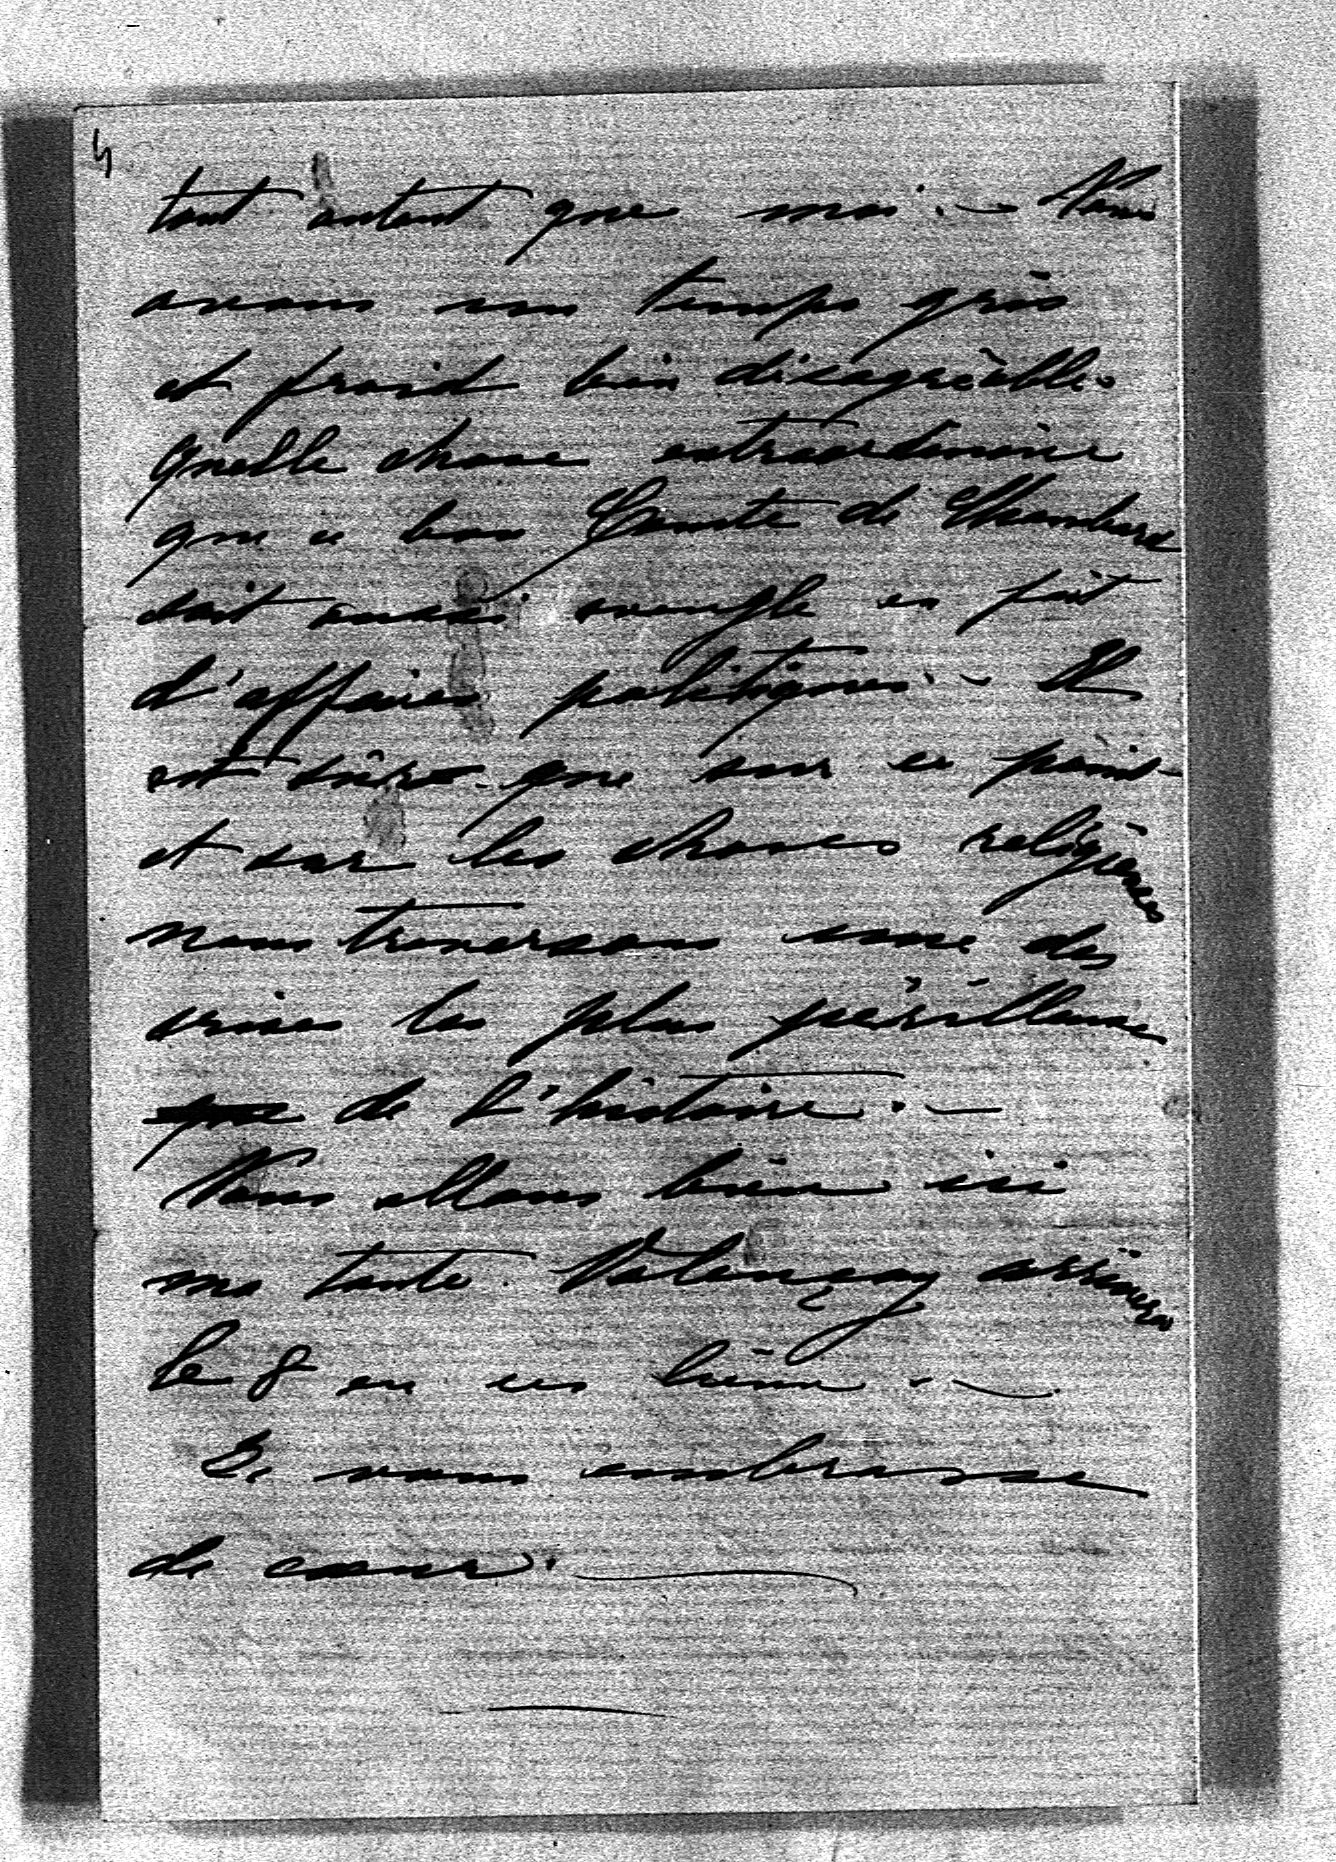 4
tout autant que moi. — Nous
avons un temps gris
et froid bien désagréable.
Quelle chose extraordinaire
que ce bon Comte de Chambord
soit aussi aveugle en fait
d'affaires politiques. — Il
est sûre que sur ce point
et sur les choses religieuses
nous traversons une des
crises les plus périlleuses
de l'histoire. —
Nous allons bien ici
ma tante Valençay arrivera
le 8 en
Je vous embrasse
de cœur.